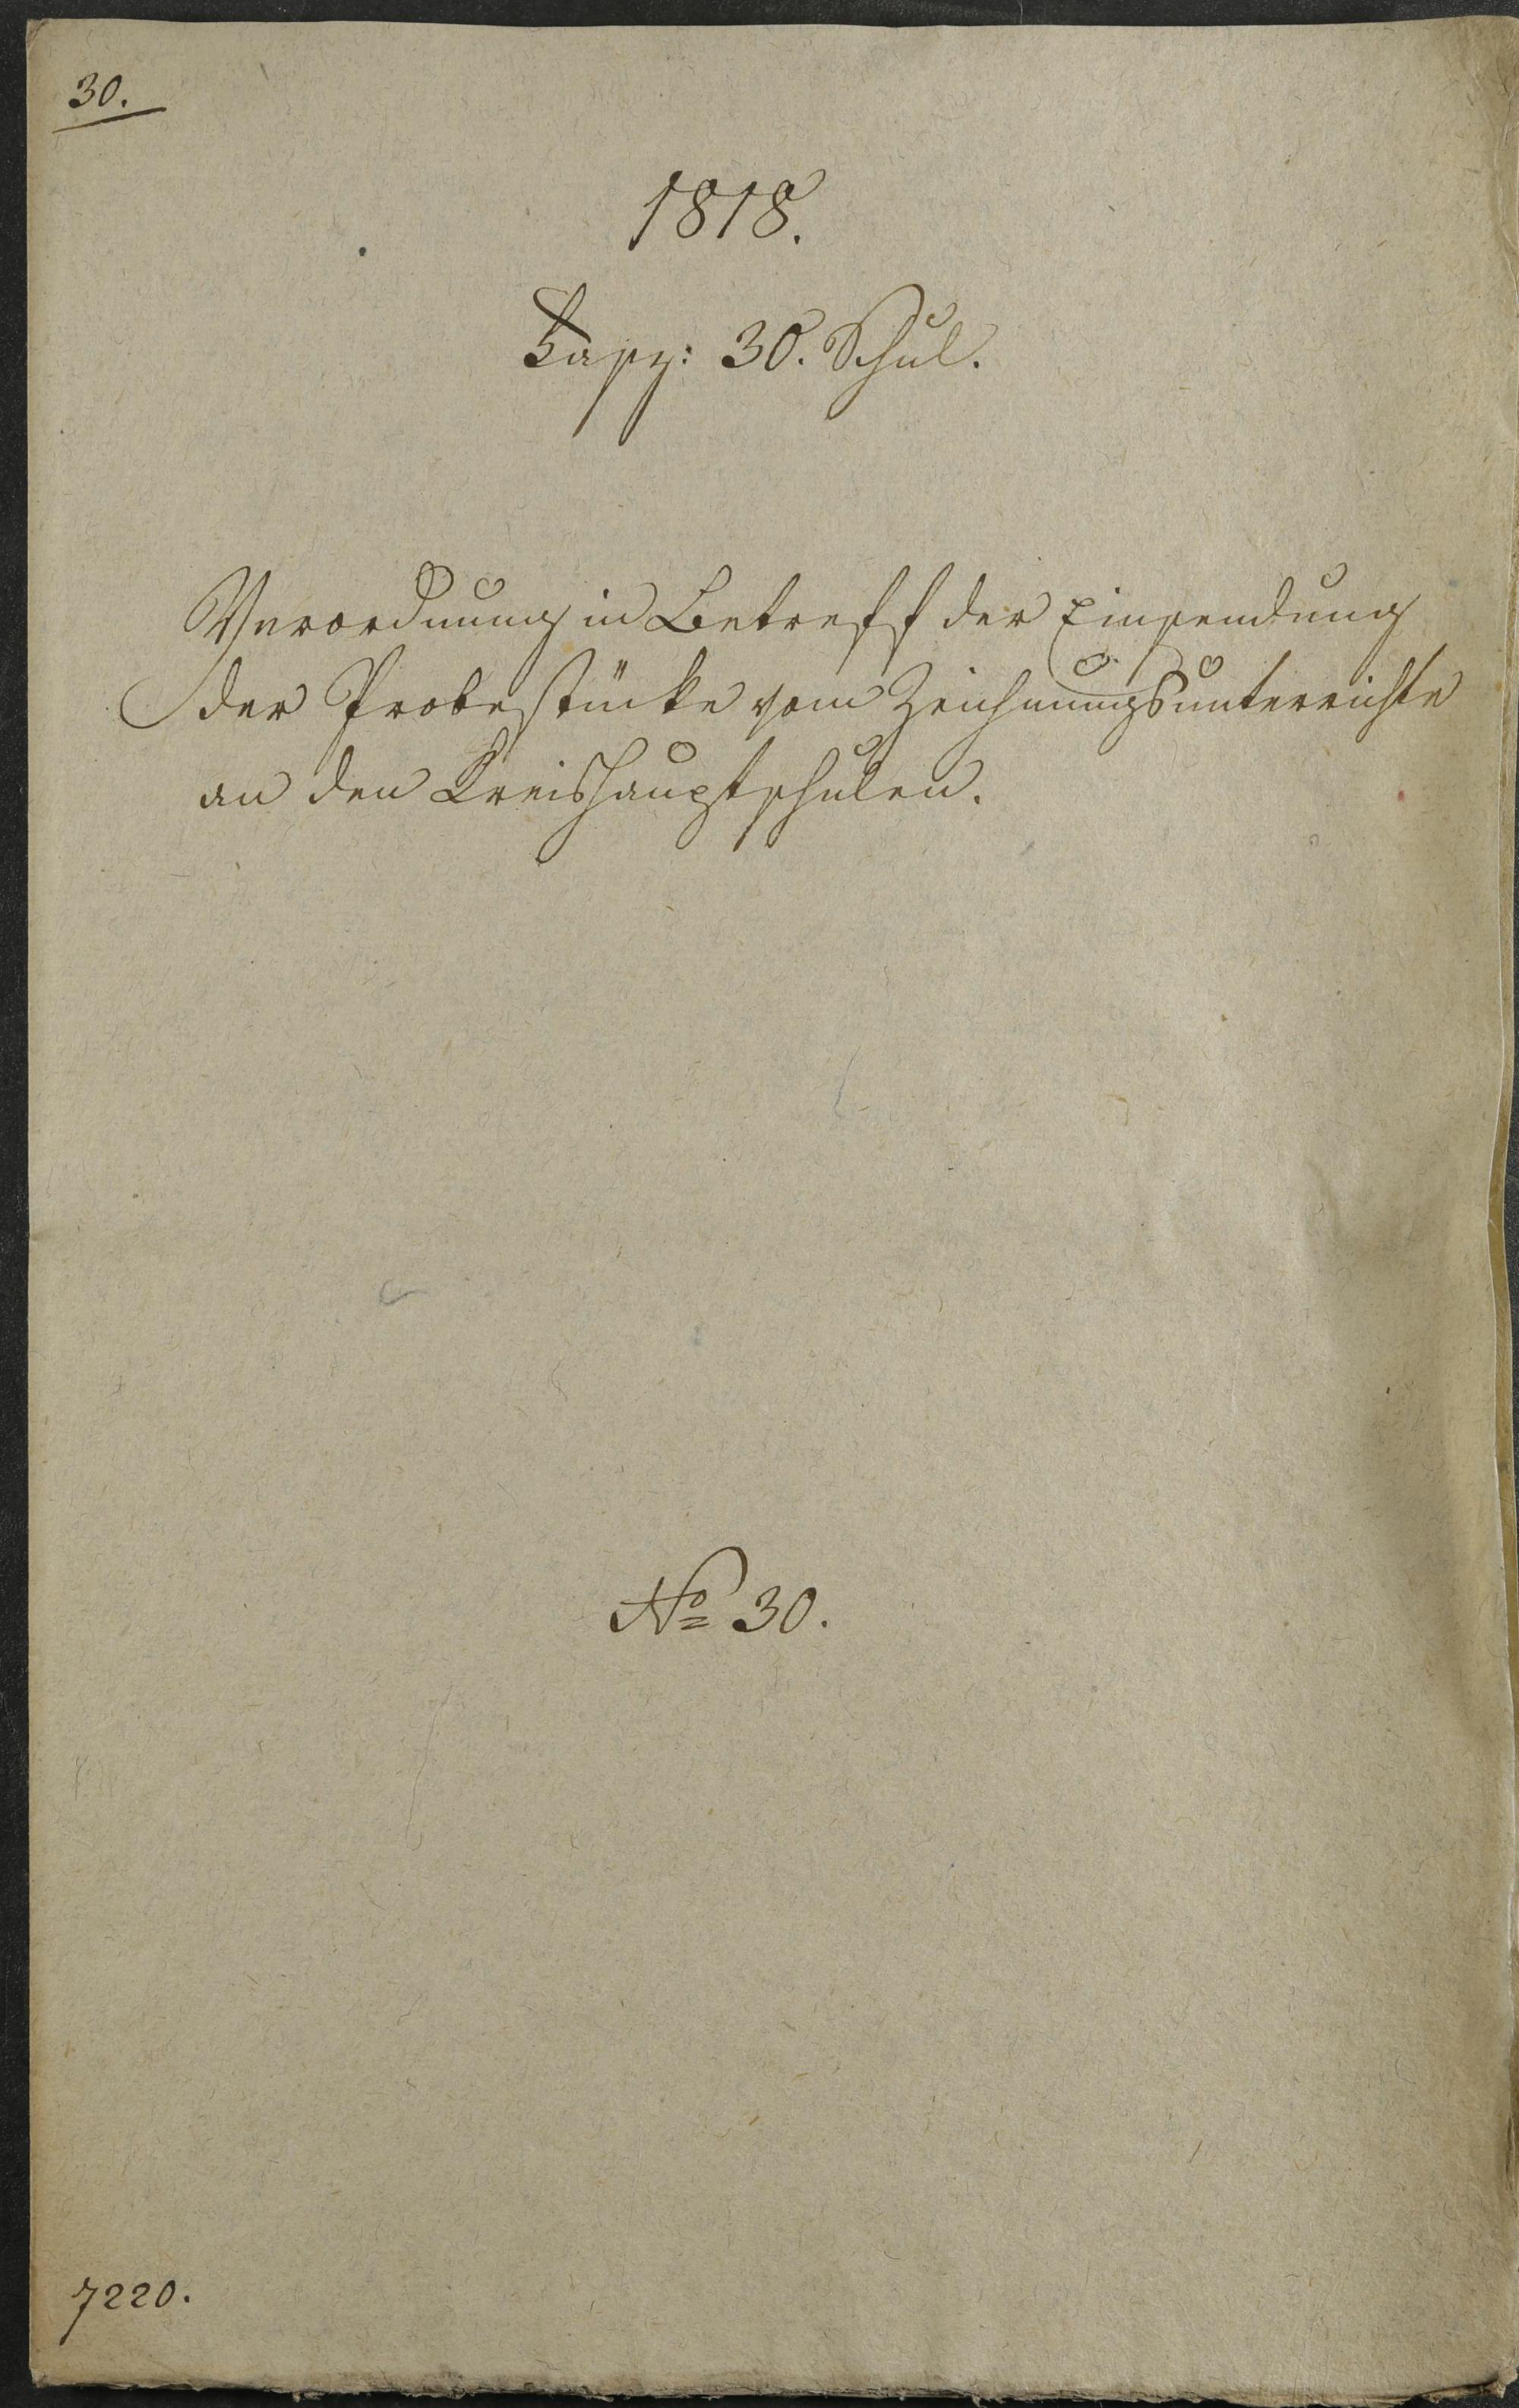 30.
1818.
Fasz: 30. Schul.
Verordnung in Betreff der Einsendung
der Probestücke vom Zeichnungsunterrichte
an den Kreishauptschulen.
No 30.
7220.